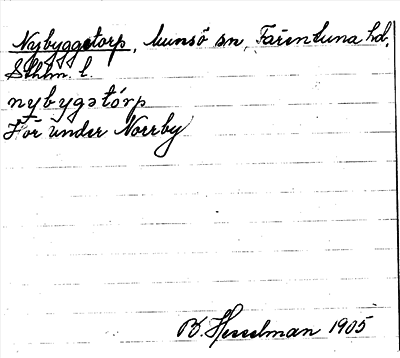 Nybyggetorp, Munsö sn, Färentuna hd,
Sthlm. l.
nybygətórp
För under Norrby
B. Hesselman 1905